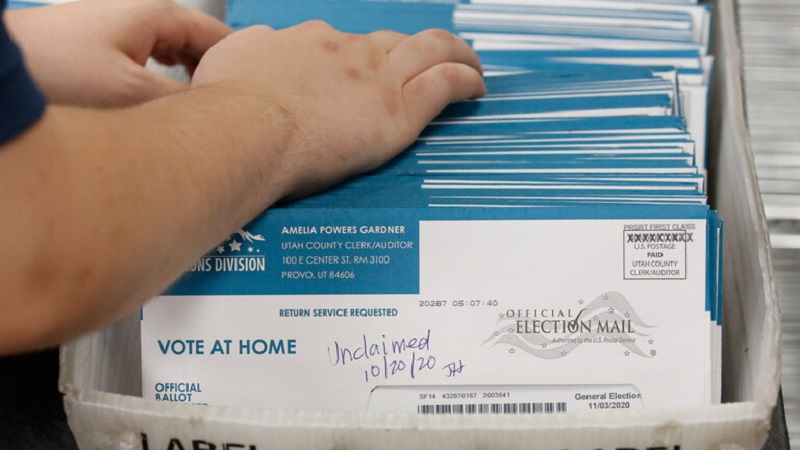 AMELIA POWERS GARDNER
UTAH COUNTY CLERK/AUDITOR
100 E CENTER ST, RM 3100
PROVO, UT 84606
ONS DIVISION
PRSRT FIRST CLASS
XXXXXXXXX
U.S. POSTAGE
PAID
UTAH COUNTY
CLERK/AUDITOR
RETURN SERVICE REQUESTED
20287 05:07:40
OFFICIAL
ELECTION MAIL
Authorized by the U.S. Postal Service
®
VOTE AT HOME
Unclaimed
10/20/20
OFFICIAL
BALLOT
SF14 432870167 2003641
General Election
11/03/2020
LABEL
LABEL